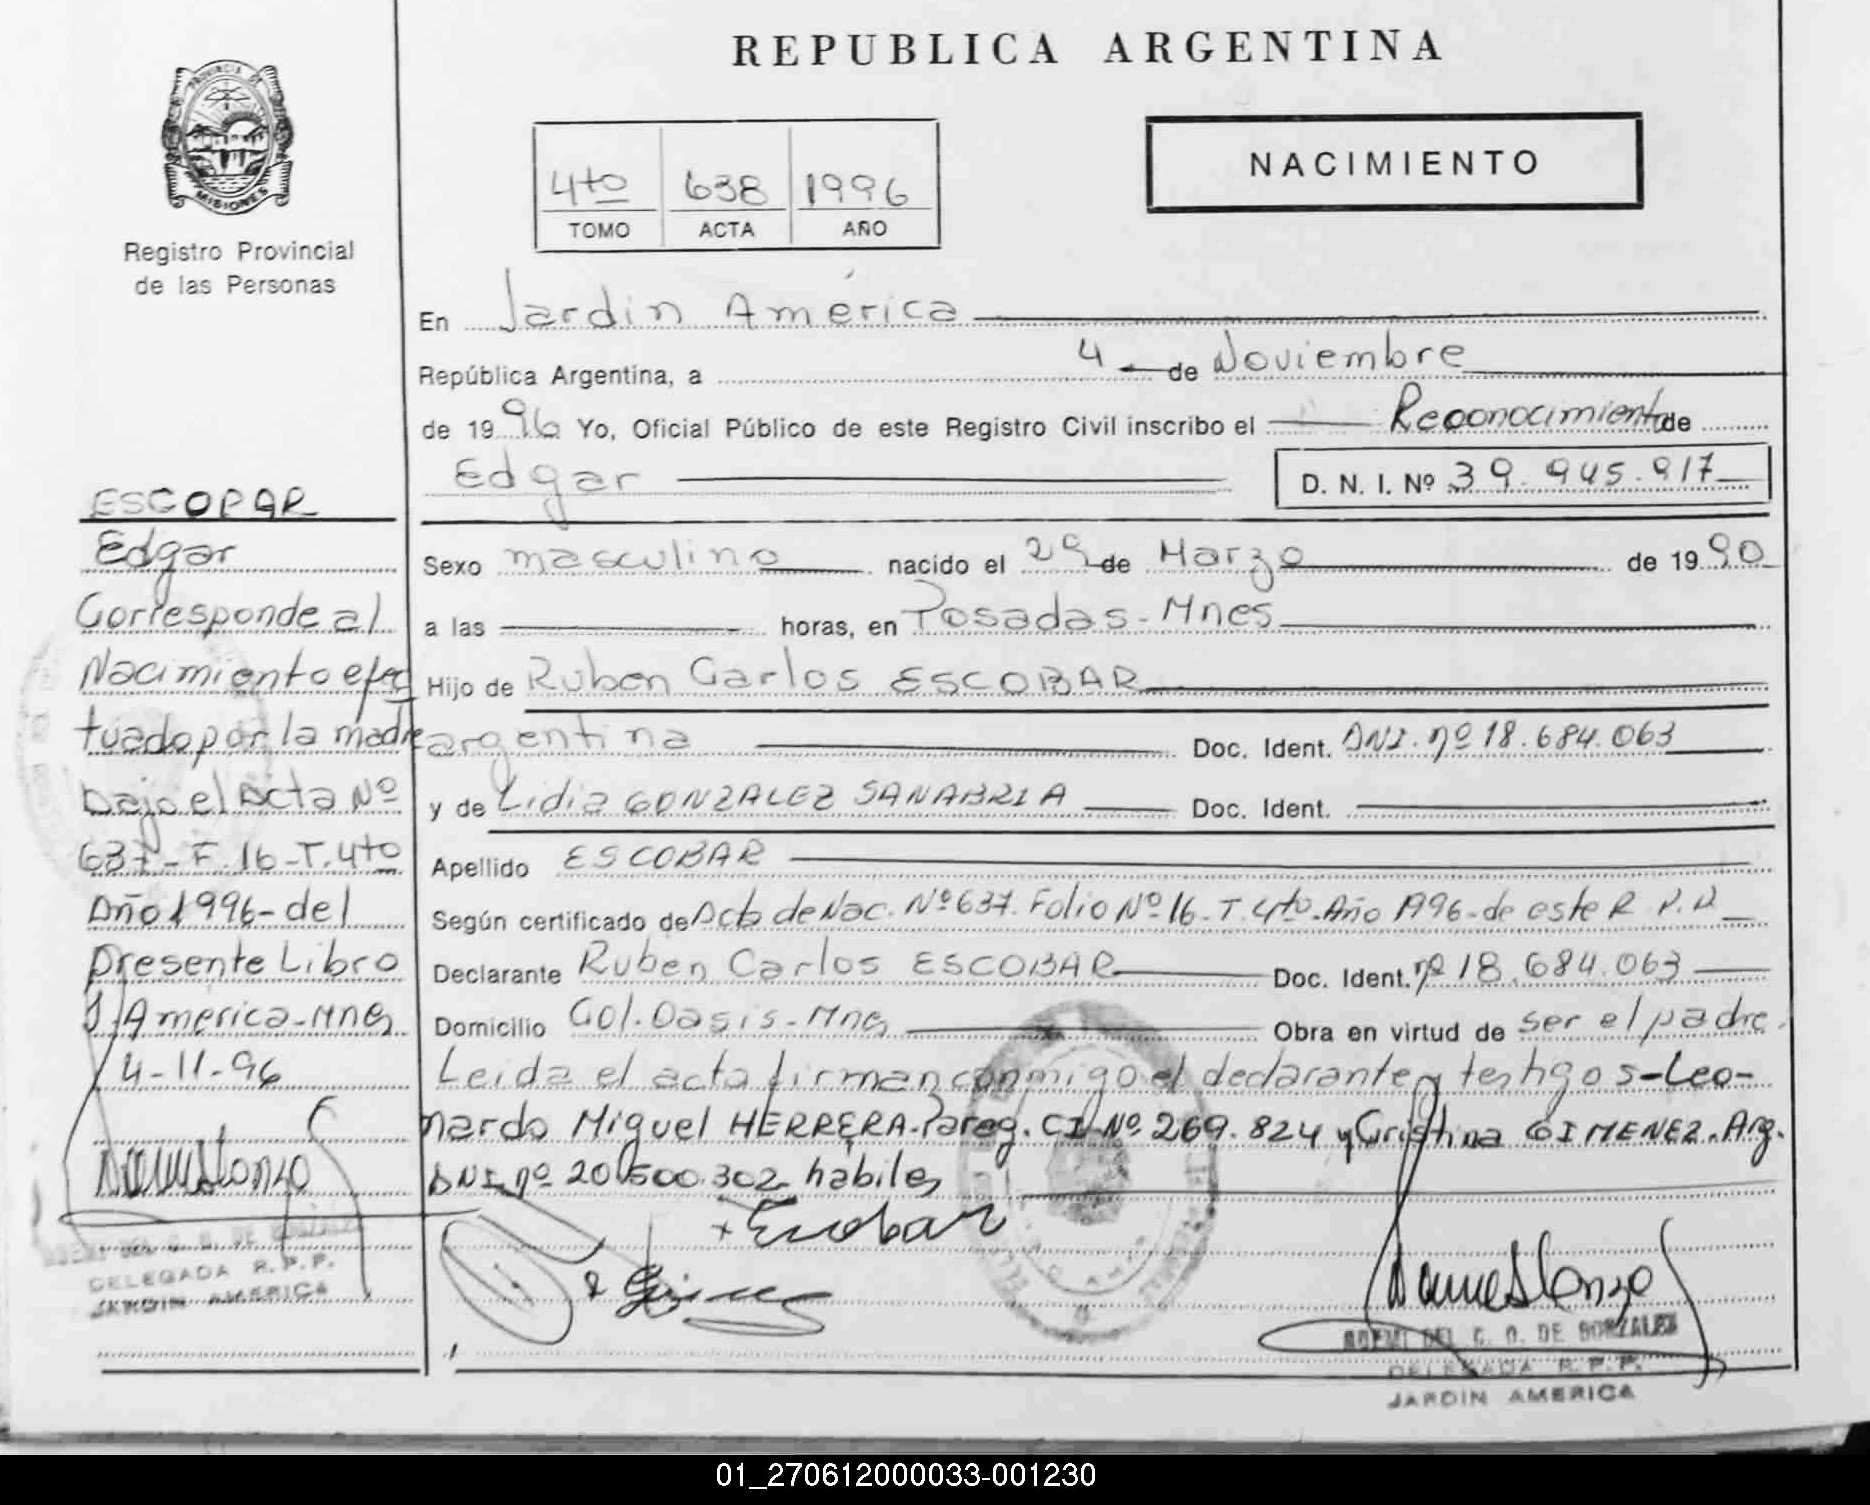 REPUBLICA ARGENTINA
PROVINCIA DE
MISIONES
Registro Provincial
de las Personas
4to 638 1996
TOMO ACTA AÑO
NACIMIENTO
En Jardin América
República Argentina, a 4 de Noviembre
de 1996 Yo, Oficial Público de este Registro Civil inscribo el Reconocimiento de
Edgar D. N. I. Nº 39.945.917
Sexo masculino nacido el 29 de Marzo de 1990
a las horas, en Posadas - Mnes
Hijo de Ruben Carlos ESCOBAR
argentina Doc. Ident. DNI. nº 18.684.063
y de Lidia GONZALEZ SANABRIA Doc. Ident.
Apellido ESCOBAR
Según certificado de Acta de Nac. Nº 637. Folio Nº 16 - T. 4to - Año 1996 - de este R. P. P.
Declarante Ruben Carlos ESCOBAR Doc. Ident. nº 18.684.063
Domicilio Col. Oasis - Mnes Obra en virtud de ser el padre.
Leida el acta firman conmigo el declarante y testigos - Leo-
nardo Miguel HERRERA. Parag. CI Nº 269.824 y Cristina GIMENEZ. Arg.
DNI nº 20.500.302 habiles
Escobar
DELEGADA R. P. P.
JARDIN AMERICA
ESCOBAR
Edgar
Corresponde al
Nacimiento efec
tuado por la madre
bajo el Acta Nº
637 - F. 16 - T. 4to
Año 1996 - del
Presente Libro
J. America - Mnes
4-11-96
DELEGADA R. P. P.
JARDIN AMERICA
01_270612000033-001230